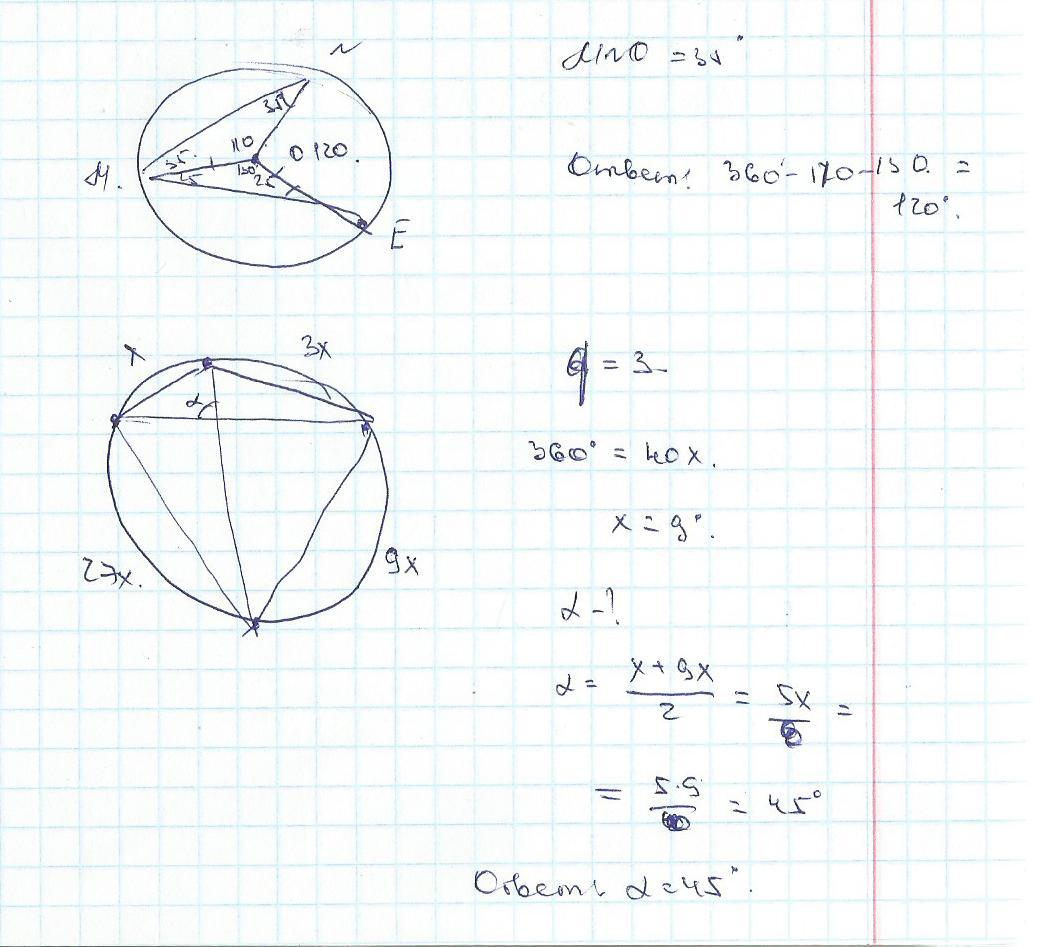 N
M.
35.
35
110
O 120.
130°
25
25
E
MNO = 35°
Ответ: 360° - 110 - 130. =
120°.
x
3x
α
27x.
9x
q = 3
360° = 40x.
x = 9°.
α - ?
α = (x + 9x)/2 = 5x =
= 5·9 = 45°
Ответ: α = 45°.